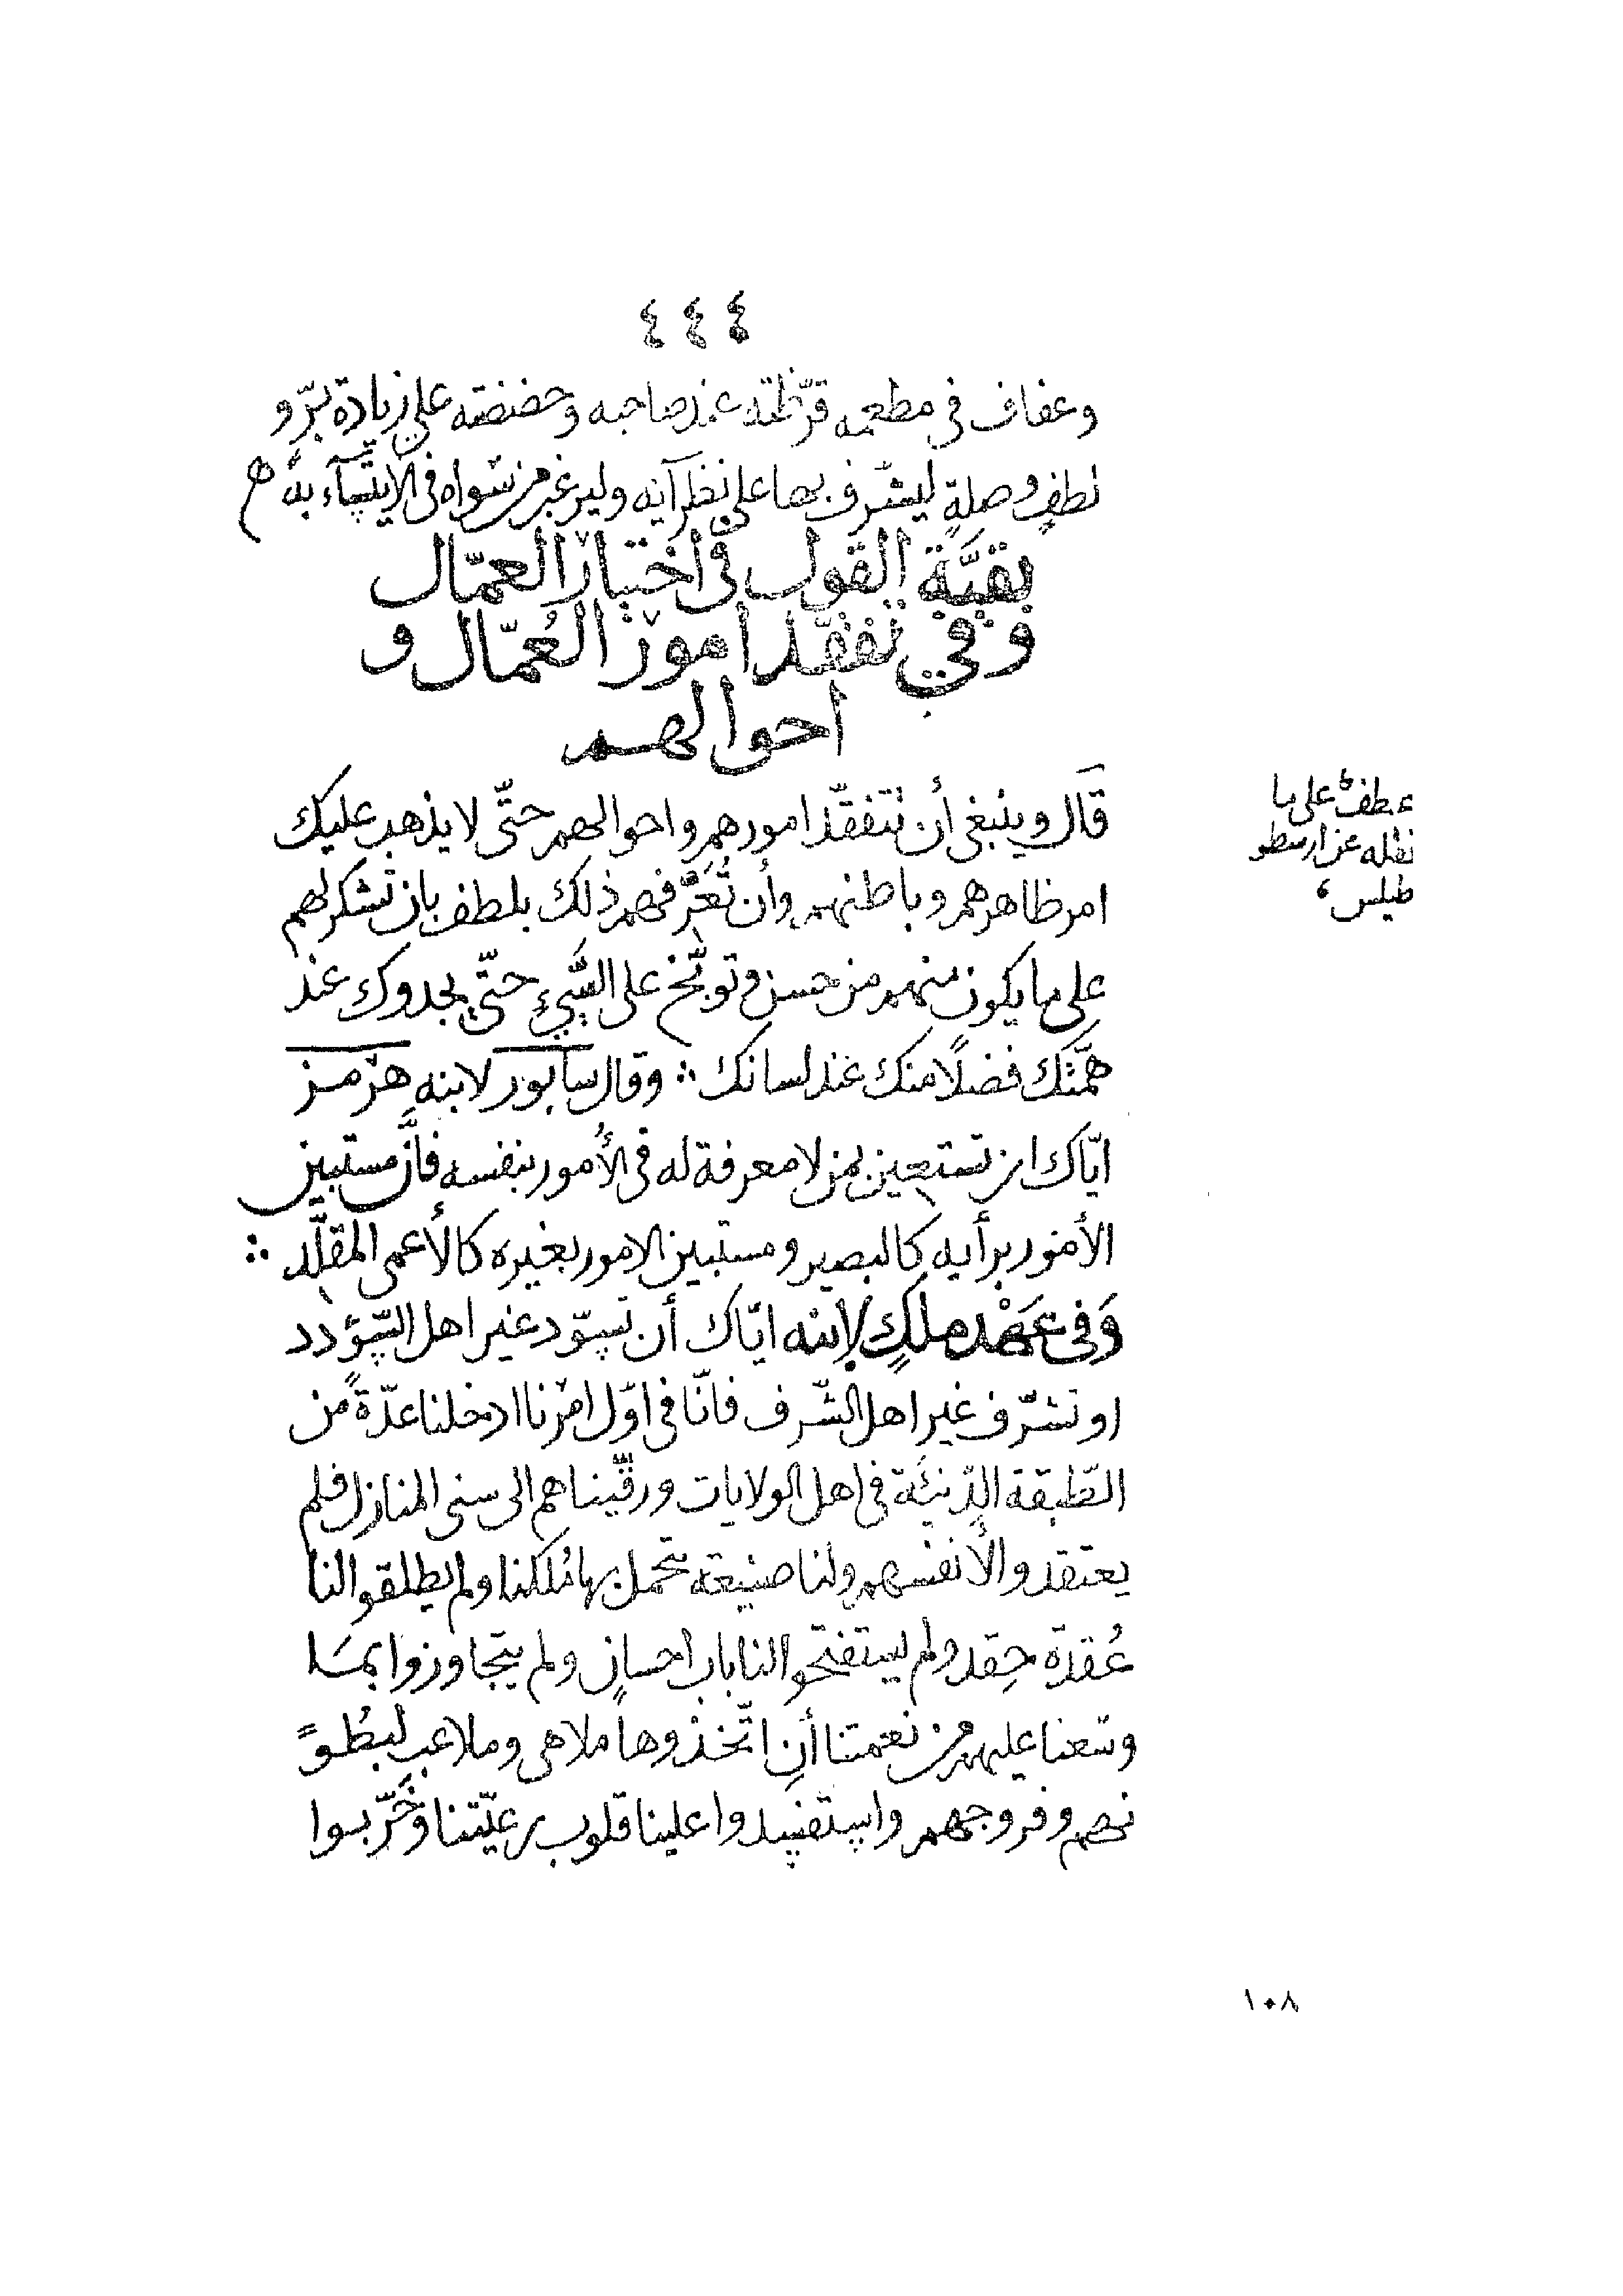 ٤٤٤
وعفاف في مطعمه قرّظته عند صاحبه وحضضته على زيادة برّ و
لطفٍ وصلةٍ ليشرف بها على نظرآئه وليرغب من سواه في الايتسآء به
بقيّة القول في اختيار العمّال
وفي تفقد امور العُمّال و
احوالهم
قال وينبغي أن تتفقّد امورهم واحوالهم حتّى لا يذهب عليك
امر ظاهرهم وباطنهم وأن تُعَرّفهم ذلك بلطف بان تشكر لهم
على ما يكون منهم من حسن وتوبّخ على السّيّءِ حتّى يجدوك عند
همّتك فضلًا منك عند لسانك ∴ وقال سابور لابنه هرمز
ايّاك ان تستعين بمن لا معرفة له في الأمور بنفسه فانّ مستبين
الأمور برأيه كالبصير ومستبين الامور بغيره كالأعمى المقلّد ∴
وَفي عَهْد ملكٍ لإبنه ايّاك أن تسوّد غير اهل السّؤدد
او تشرّف غير اهل الشّرف فانّا في اوّل امرنا ادخلنا عدّةً من
الطّبقة الدّنيّة في اهل الولايات ورقّيناهم الى سنى المنازل فلم
يعتقدوا لأنفسهم ولنا صنيعة تجمل بها مُلكنا ولم يطلقوا لنا
عُقدة حِقد ولم يستفتحوا لنا باب احسانٍ ولم يتجاوزوا بما
وسّعنا عليهم من نعمتنا أنِ اتّخذوها ملاهى وملاعب لبطو
نهم وفروجهم واستفسدوا علينا قلوب رعيّتنا وخَرّبوا
عطفٌ على ما
نقله عن ارسطو
طيلس
١٠٨